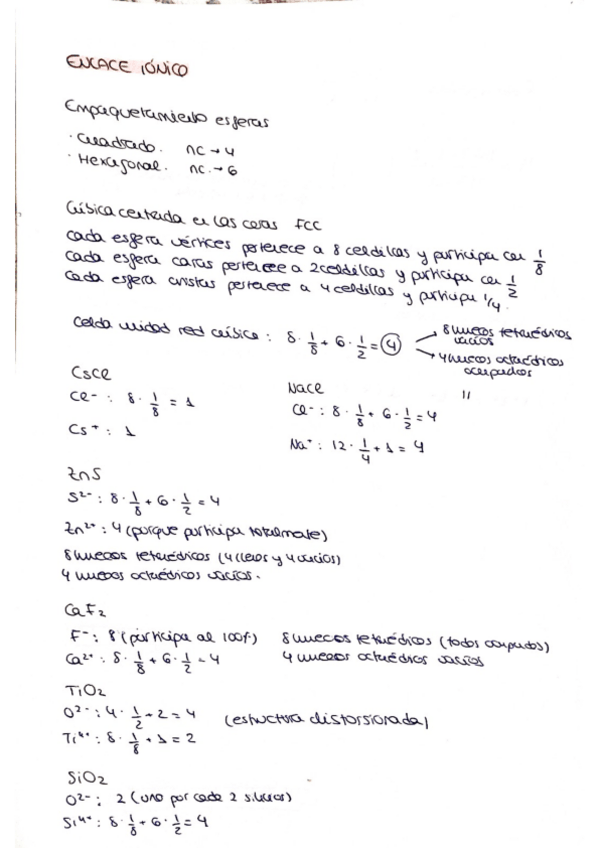 ENLACE IÓNICO
Empaquetamiento esferas
· Cuadrado. nc → 4
· Hexagonal. nc. → 6
Cúbica centrada en las caras FCC
Cada esfera vértices pertenece a 8 celdillas y participa con 1/8
Cada esfera caras pertenece a 2 celdillas y participa con 1/2
Cada esfera aristas pertenece a 4 celdillas y participa 1/4.
Celda unidad red cúbica : 8 · 1/8 + 6 · 1/2 = 4
→ 8 huecos tetraédricos vacíos
→ 4 huecos octaédricos ocupados
"
CsCl
Cl⁻ : 8 · 1/8 = 1
Cs⁺ : 1
NaCl
Cl⁻ : 8 · 1/8 + 6 · 1/2 = 4
Na⁺ : 12 · 1/4 + 1 = 4
ZnS
S²⁻ : 8 · 1/8 + 6 · 1/2 = 4
Zn²⁺ : 4 (porque participa totalmente)
8 huecos tetraédricos (4 llenos y 4 vacíos)
4 huecos octaédricos vacíos.
CaF₂
F⁻ : 8 (participa al 100%) 8 huecos tetraédricos (todos ocupados)
Ca²⁺ : 8 · 1/8 + 6 · 1/2 = 4 4 huecos octaédricos vacíos
TiO₂
O²⁻ : 4 · 1/2 + 2 = 4 (estructura distorsionada)
Ti⁴⁺ : 8 · 1/8 + 1 = 2
SiO₂
O²⁻ : 2 (uno por cada 2 silicios)
Si⁴⁺ : 8 · 1/8 + 6 · 1/2 = 4